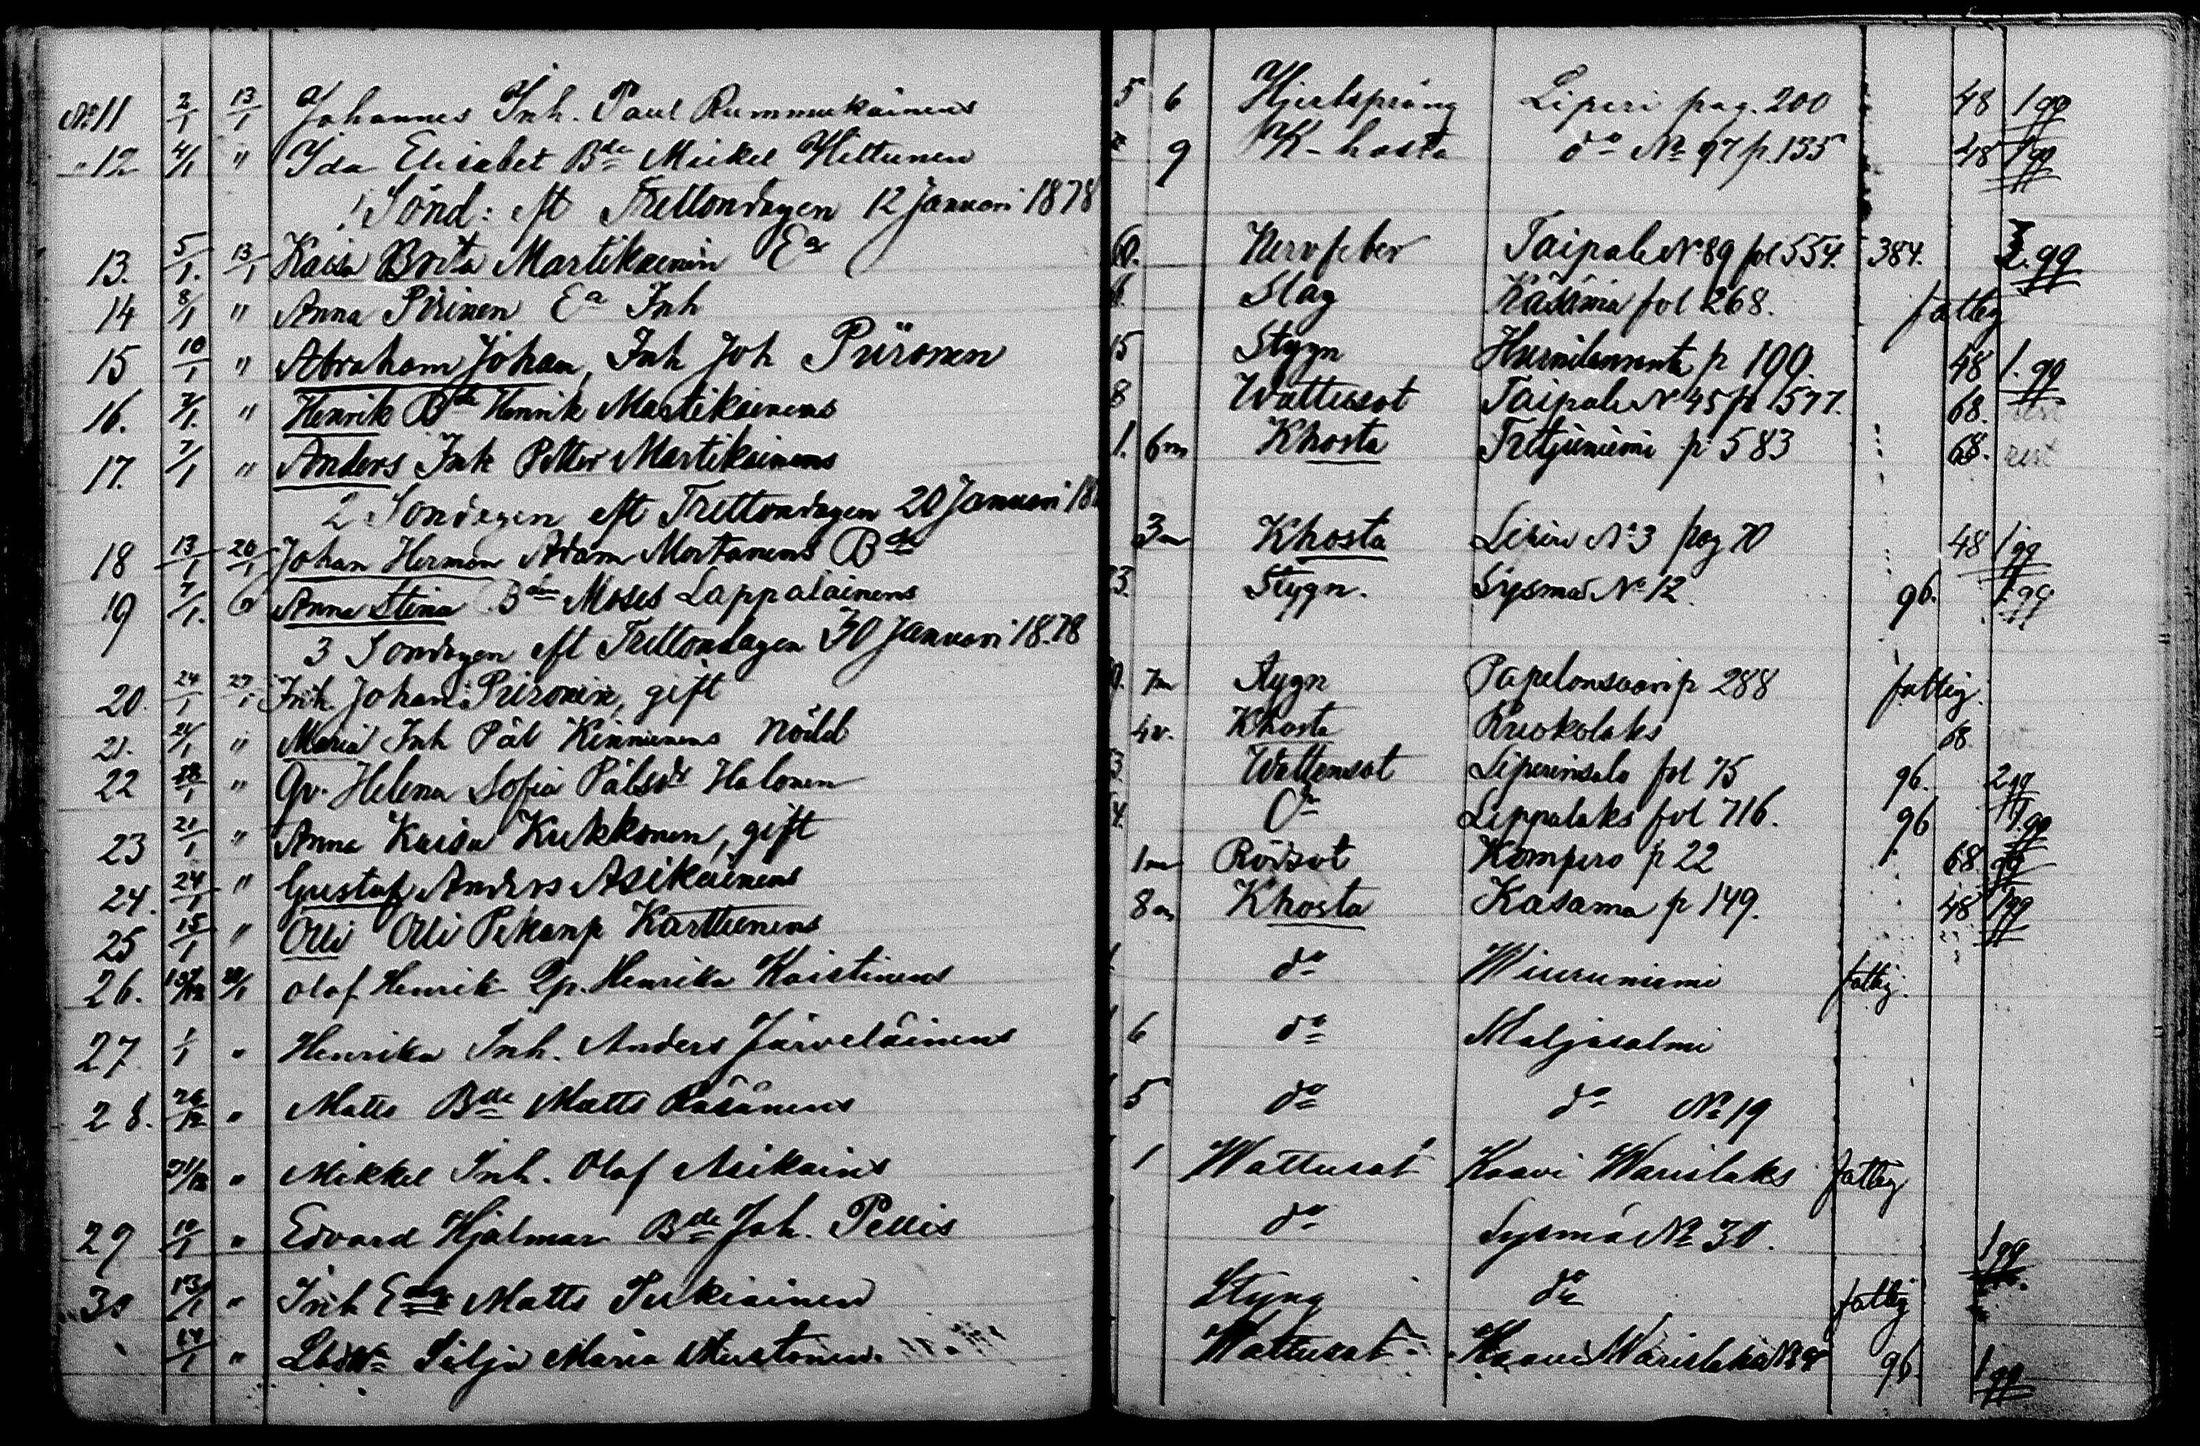 No 11 2/1 13/1 Johannes Inh. Paul Rummukainens 5 6 Hjertsprång Liperi pag. 200 48 1 gg
" 12 4/1 " Ida Elisabet Bde Mickel Hiltunen 9 K-hosta do No 97 p. 135 48 1 gg
Sönd: eft Trettondagen 12 Januari 1878
13. 5/1. 13/1 Kaisa Brita Martikainen Ea 60. Nervfeber Taipale No 89 fol 554. 384. 2. gg
14 8/1 " Anna Piirinen Ea Inh Slag Käsämä fol 268. fattig
15 10/1 " Abraham Johan, Inh Joh Piironen 15 Stygn p 109. 48 1. gg
16. 7/1. " Henrik Bde Henrik Martikainens 8 Wattusot Taipale No 45 p 577. 68. rest
17. 7/1 " Anders Inh Petter Martikainens 1. 6m Khosta p 583 68. rest
2 Söndagen eft Trettondagen 20 Januari 18
18 13/1 20/1 Johan Herman Adam Mortanens Bde 3m Khosta Liperi No 3 pag 70 48 1 gg
19 7/1. Anna Stina Bde Moses Lappalainens 3. Stygn. Sysmä No 12. 96. 1. gg
3 Söndagen eft Trettondagen 30 Januari 18.78
20. 24/1 27/1 Inh. Johan Piironen, gift 7m Stygn Papelonsaari p 288 fattig.
21. 24/1 " Maria Inh Pål Kinnunens nödd 4v. Khosta Kuokolaks 68
22 18/1 " Qv. Helena Sofia Pålsdr Halonen 3. Wattensot Liperinsalo fol 75 96. 2 gg
23 21/1 " Anna Kaisa Kukkonen, gift 4. do Leppälaks fol 716. 96 1. gg
24. 24/1 " Gustaf Anders Asikainens 1m Rödsot Kompero p 22 68. gg
25 15/1 " Olli Olli Pekanp Karttunens 8m Khosta Käsämä p 149. 48 1 gg
26. 28/1 Olof Henrik Qp. Henrika Koistinens do Wiuruniemi fattig.
27. 1/1 " Henrika Inh. Anders Järveläinens 6 do Maljasalmi
28. " Matts Bde Matts Räsänens 5 do do No 19
31/12 " Mikkel Inh. Olof Asikains 1 Wattusot Kaavi Warislaks fattig
29 10/1 " Edvard Hjalmar Bde Joh. Pellis do Sysmä No 30. 1 gg
30 13/1 " Inh Matts Sukiainen Styng do fattig
14/1 " Silja Maria Mustonen. Wattusot Kaavi Warislaks 96. 1 gg